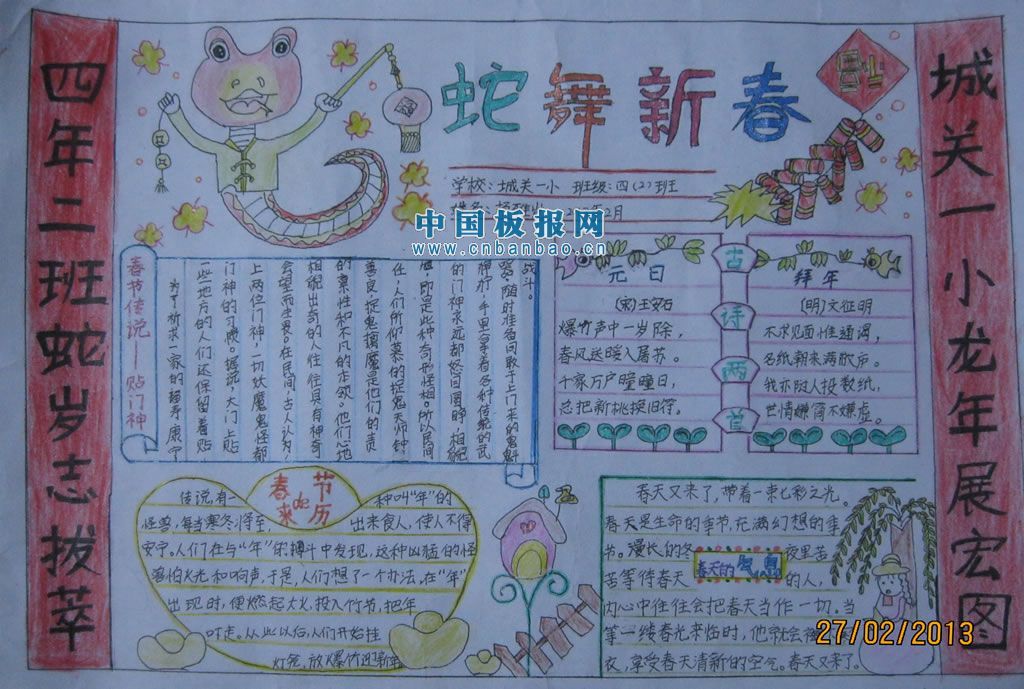 城关一小龙年展宏图
四年二班蛇岁志拔萃
蛇舞新春
学校：城关一小 班级：四(2)班
中国板报网
www.cnbanbao.cn
春节传说——贴门神
为了祈求一家的福寿康宁
一些地方的人们还保留着贴
门神的习惯。据说，大门上贴
上两位门神，一切妖魔鬼怪都
会望而生畏。在民间，古人认为，
相貌出奇的人往往具有神奇
的禀性和不凡的本领。他们心地
善良，捉鬼擒魔是他们的责
任，人们所仰慕的捉鬼天师钟
馗，即是此种奇形怪相。所以民间
的门神永远都怒目圆睁，相貌
狰狞，手里拿着各种传统的武
器，随时准备同敢于上门来的鬼魅
战斗。
古诗两首
元日
(宋)王安石
爆竹声中一岁除，
春风送暖入屠苏。
千家万户曈曈日，
总把新桃换旧符。
拜年
(明)文征明
不求见面惟通谒，
名纸朝来满敝庐。
我亦随人投数纸，
世情嫌简不嫌虚。
春节de来历
传说，有一种叫“年”的
怪兽，每当寒冬将至，出来食人，使人不得
安宁。人们在与“年”的搏斗中发现，这种凶猛的怪
害怕火光和响声，于是，人们想了一个办法，在“年”
出现时，便燃起大火，投入竹节，把年
吓走。从此以后，人们开始挂
灯笼，放爆竹迎新年
春天的
春天又来了，带着一束七彩之光。
春天是生命的季节，充满幻想的季
节。漫长的冬夜里苦
苦等待春天的人，
内心中往往会把春天当作一切。当
等一缕春光来临时，他就会
衣，享受春天清新的空气。春天又来了。
27/02/2013